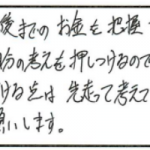 後までのお金を把握
分の考えを押しつけるので
ける点は先走って考えて
願いします。